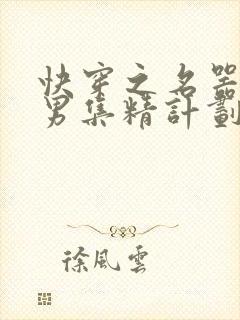 快穿之名器
男集精計劃
徐風雲